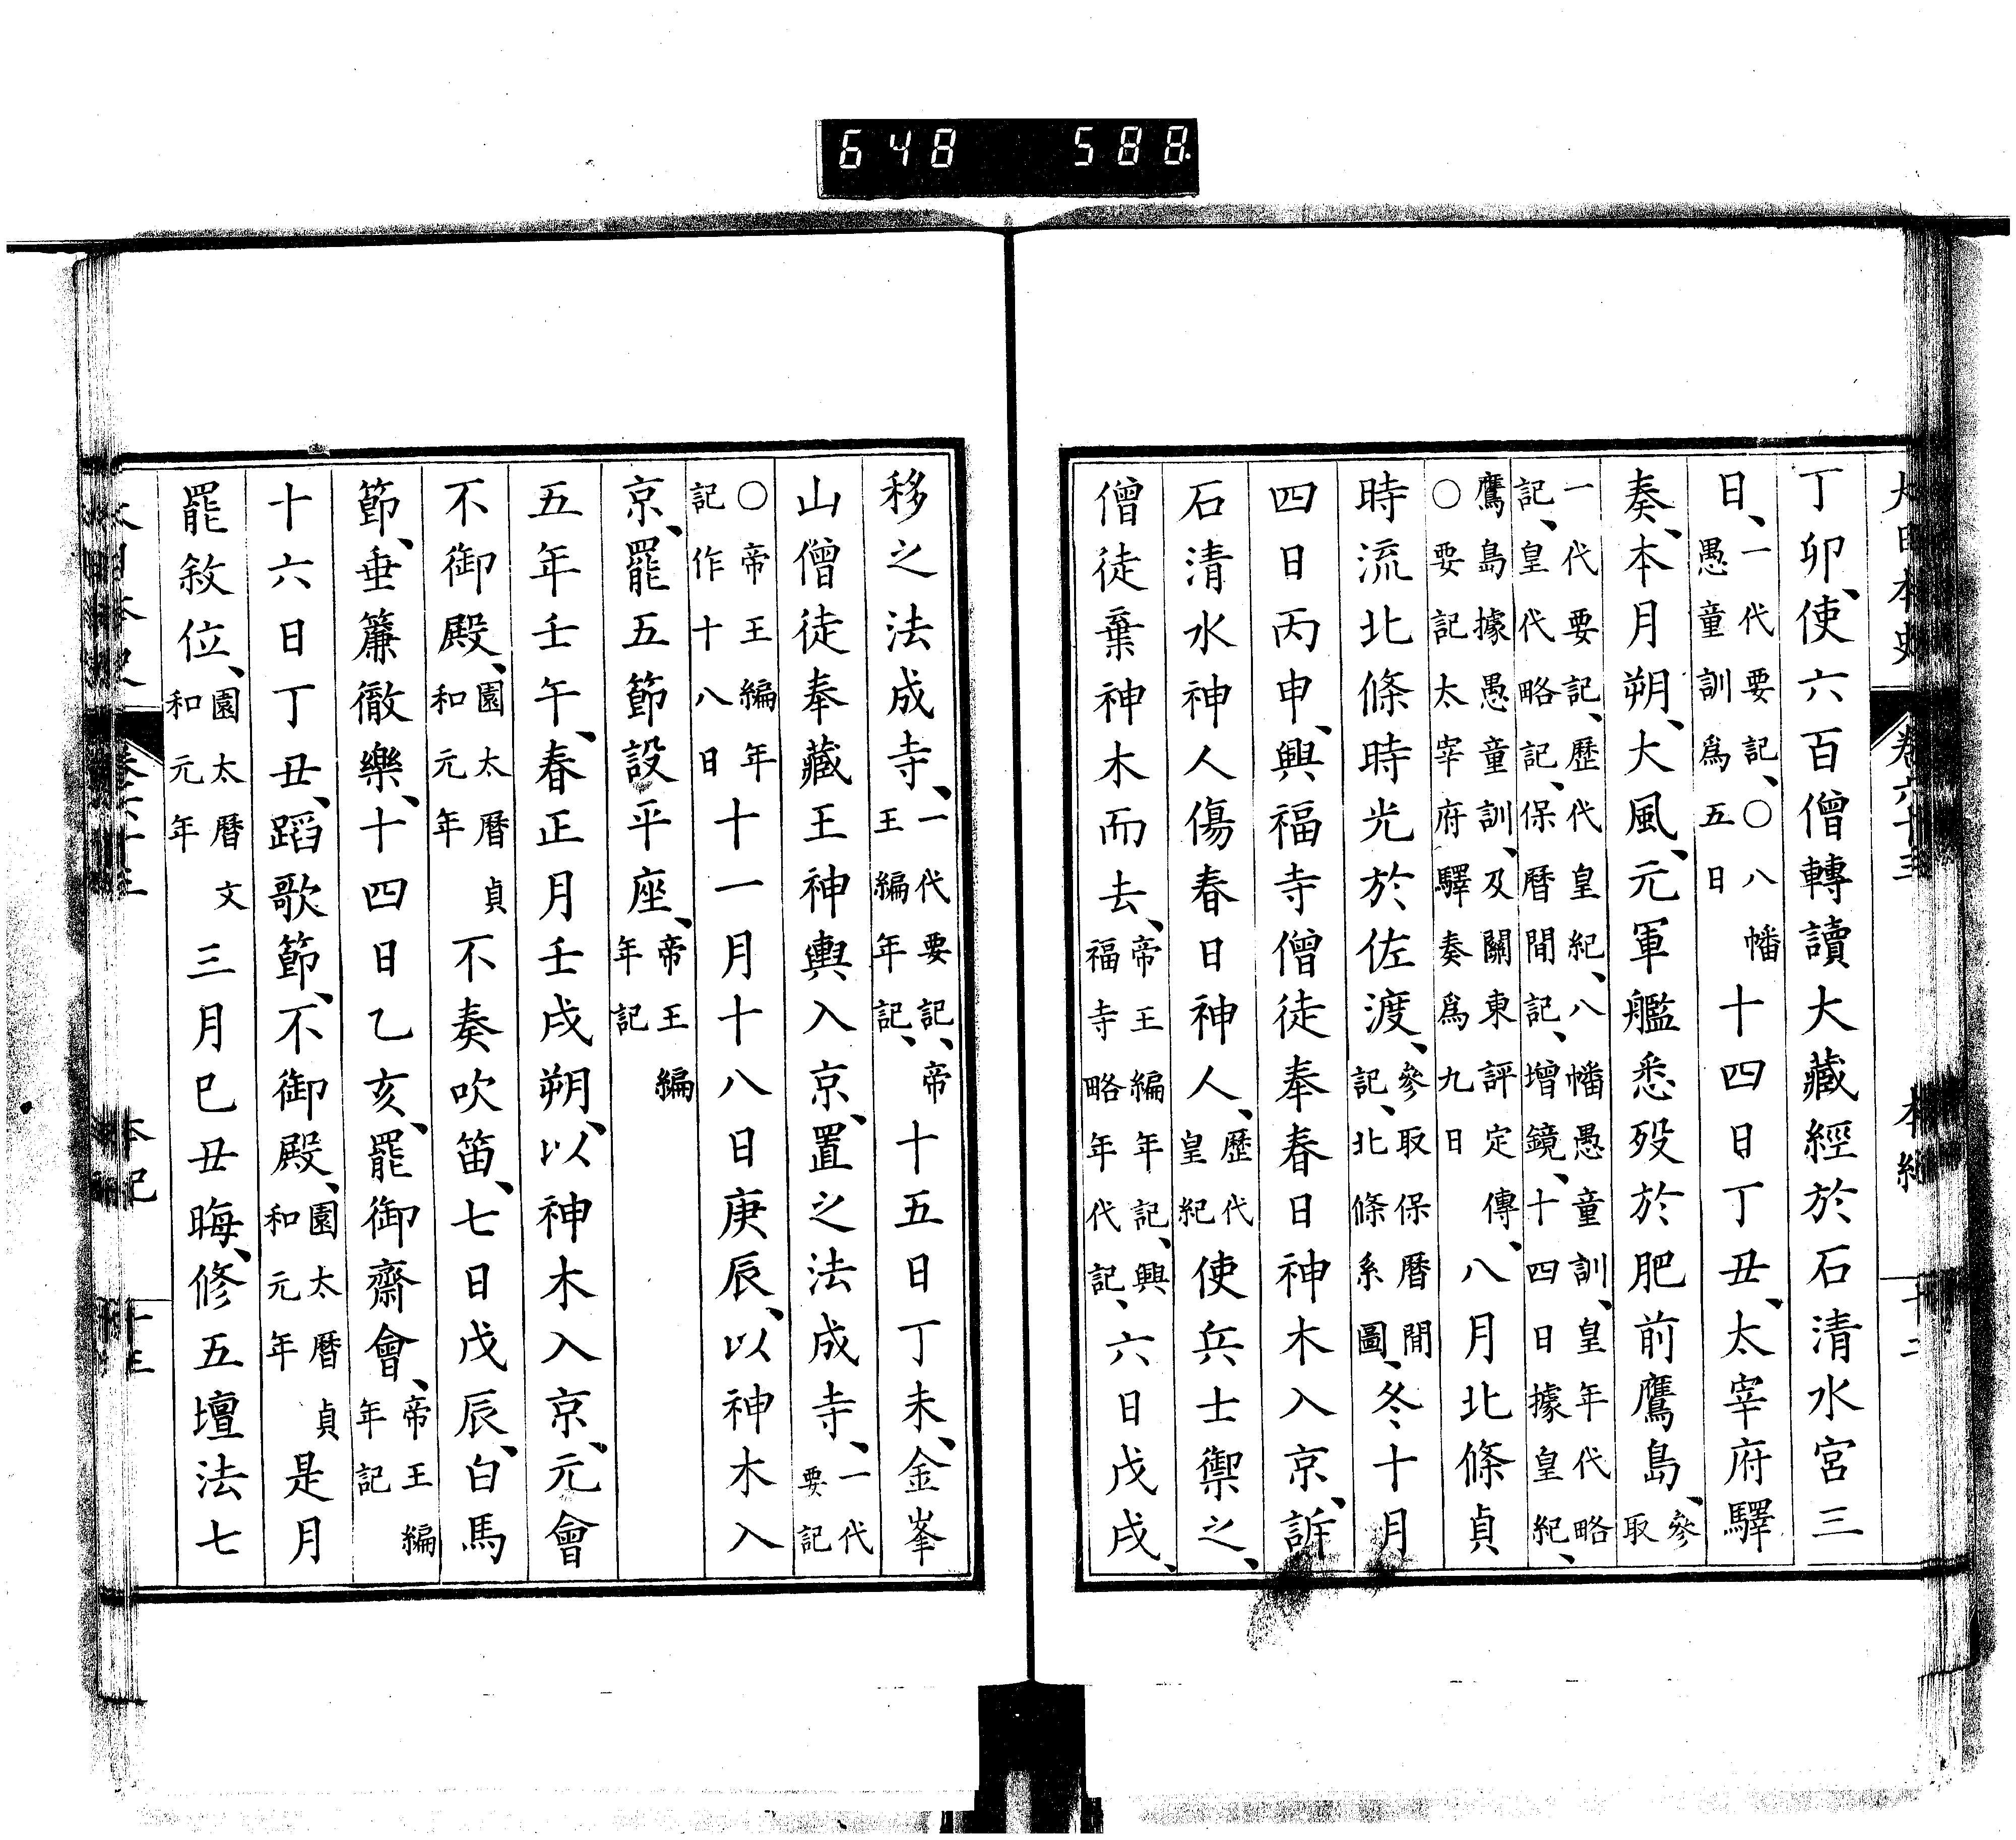 648 588.
大日本史 卷六十三 本紀 十二
丁卯、使六百僧轉讀大藏經於石清水宮三
日、一代要記、○八幡愚童訓爲五日十四日丁丑、太宰府驛
奏、本月朔、大風、元軍艦悉歿於肥前鷹島、參取
一代要記、歷代皇紀、八幡愚童訓、皇年代略記、皇代略記、保暦間記、增鏡、十四日據皇紀、
鷹島據愚童訓、及關東評定傳、○要記太宰府驛奏爲九日八月北條貞
時流北條時光於佐渡、參取保暦間記、北條系圖、冬十月
四日丙申、興福寺僧徒奉春日神木入京、訴
石清水神人傷春日神人、歷代皇紀使兵士禦之、
僧徒棄神木而去、帝王編年記、興福寺略年代記、六日戊戌、
移之法成寺、一代要記、帝王編年記、十五日丁未、金峯
山僧徒奉藏王神輿入京、置之法成寺、一代要記
○帝王編年記作十八日十一月十八日庚辰、以神木入
京、罷五節設平座、帝王編年記
五年壬午、春正月壬戌朔、以神木入京、元會
不御殿、園太暦貞和元年不奏吹笛、七日戊辰、白馬
節、垂簾徹樂、十四日乙亥、罷御齋會、帝王編年記
十六日丁丑、蹈歌節、不御殿、園太暦貞和元年是月
罷敘位、園太暦文和元年三月巳丑晦、修五壇法七
大日本史 卷六十三 本紀 十三